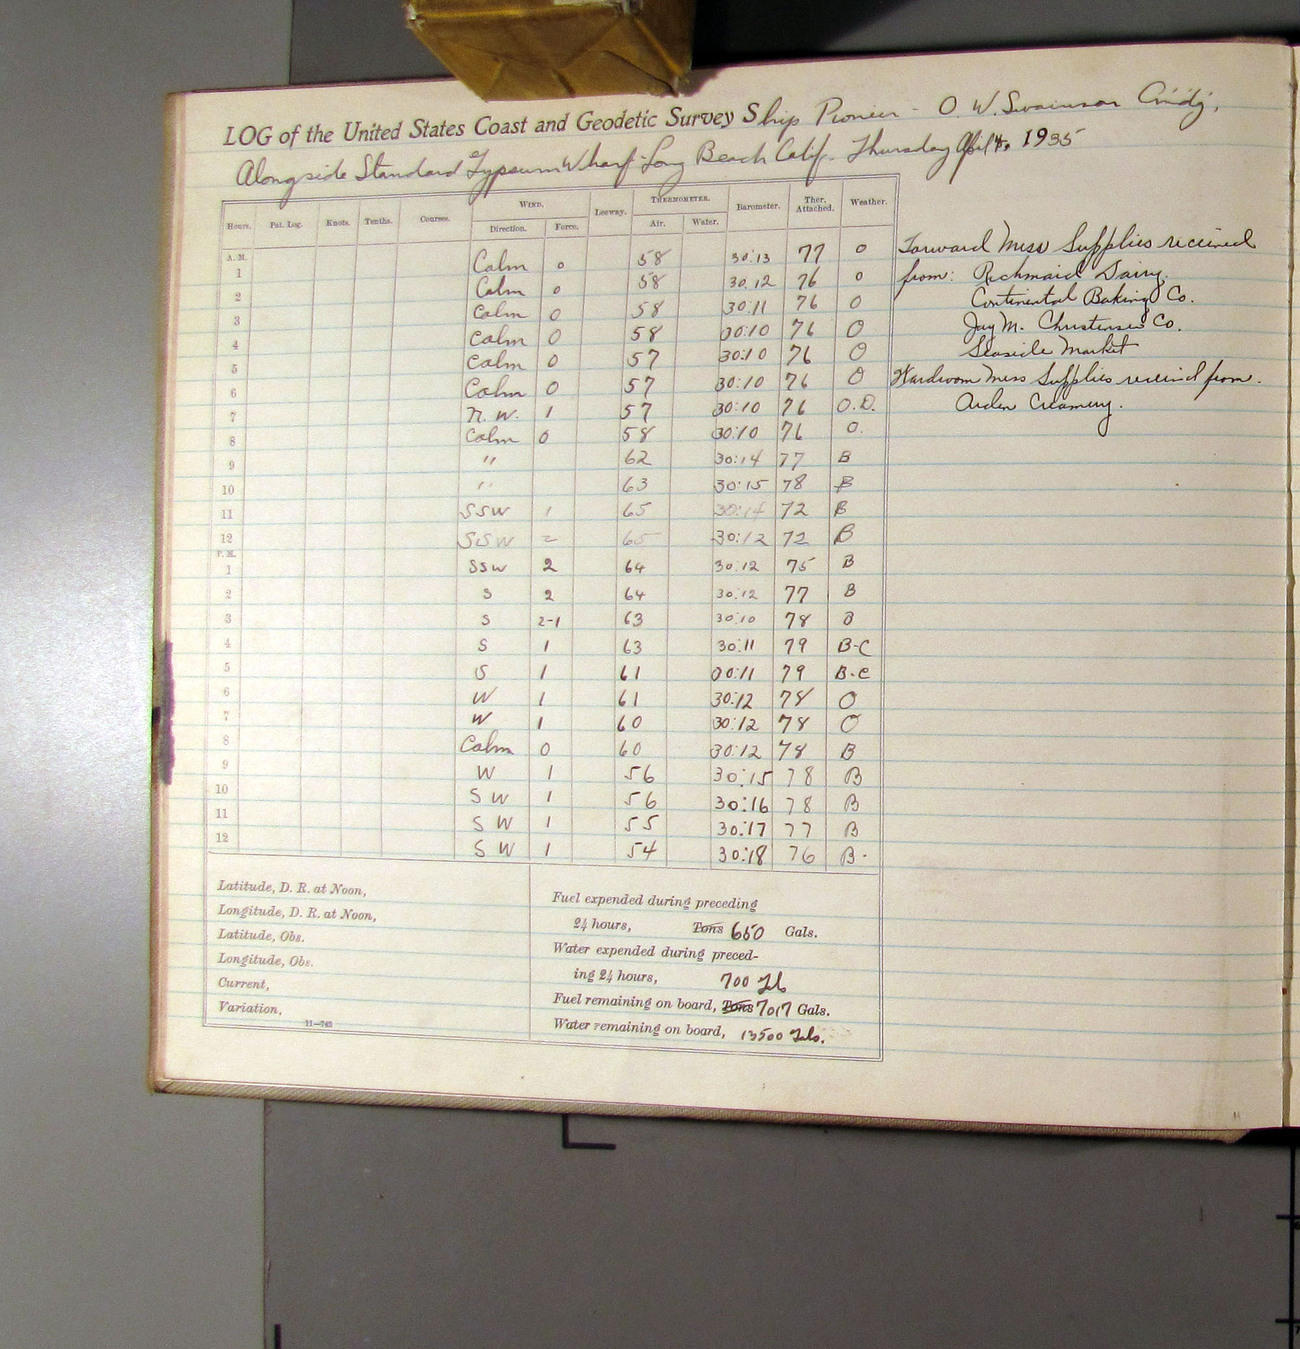 LOG of the United States Coast and Geodetic Survey Ship Pioneer - O. W. Swainson Cmd'g,
Alongside Standard Gypsum Wharf - Long Beach Calif. Thursday April 4, 1935
Hours. Pat. Log. Knots. Tenths. Courses. WIND. Leeway. THERMOMETER. Barometer. Ther. Attached. Weather.
Direction. Force. Air. Water.
A. M.
1 Calm 0 58 30:13 77 o
2 Calm 0 58 30.12 76 o
3 Calm 0 58 30:11 76 O
4 Calm 0 58 00:10 76 O
5 Calm 0 57 30:10 76 O
6 Calm 0 57 30:10 76 O
7 N. W. 1 57 30:10 76 O.D.
8 Calm 0 58 30:10 76 O.
9 " 62 30:14 77 B
10 " 63 30:15 78 B
11 SSW 1 65 30:14 72 B
12 SSW 2 65 30:12 72 B
P. M.
1 SSW 2 64 30:12 75 B
2 S 2 64 30:12 77 B
3 S 2-1 63 30:10 78 B
4 S 1 63 30:11 79 B-C
5 S 1 61 00:11 79 B-C
6 W 1 61 30:12 78 O
7 W 1 60 30:12 78 O
8 Calm 0 60 30:12 78 B
9 W 1 56 30:15 78 B
10 S W 1 56 30:16 78 B
11 S W 1 55 30:17 77 B
12 S W 1 54 30:18 76 B.
Forward Mess Supplies received
from: Richmaid Dairy.
Continental Baking Co.
Jay M. Christensen Co.
Seaside Market
Wardroom Mess Supplies received from.
Arden Creamery.
Latitude, D. R. at Noon,
Longitude, D. R. at Noon,
Latitude, Obs.
Longitude, Obs.
Current,
Variation,
11—763
Fuel expended during preceding
24 hours, Tons 650 Gals.
Water expended during preced-
ing 24 hours, 700 Gls
Fuel remaining on board, Tons 7017 Gals.
Water remaining on board, 13500 Gals.